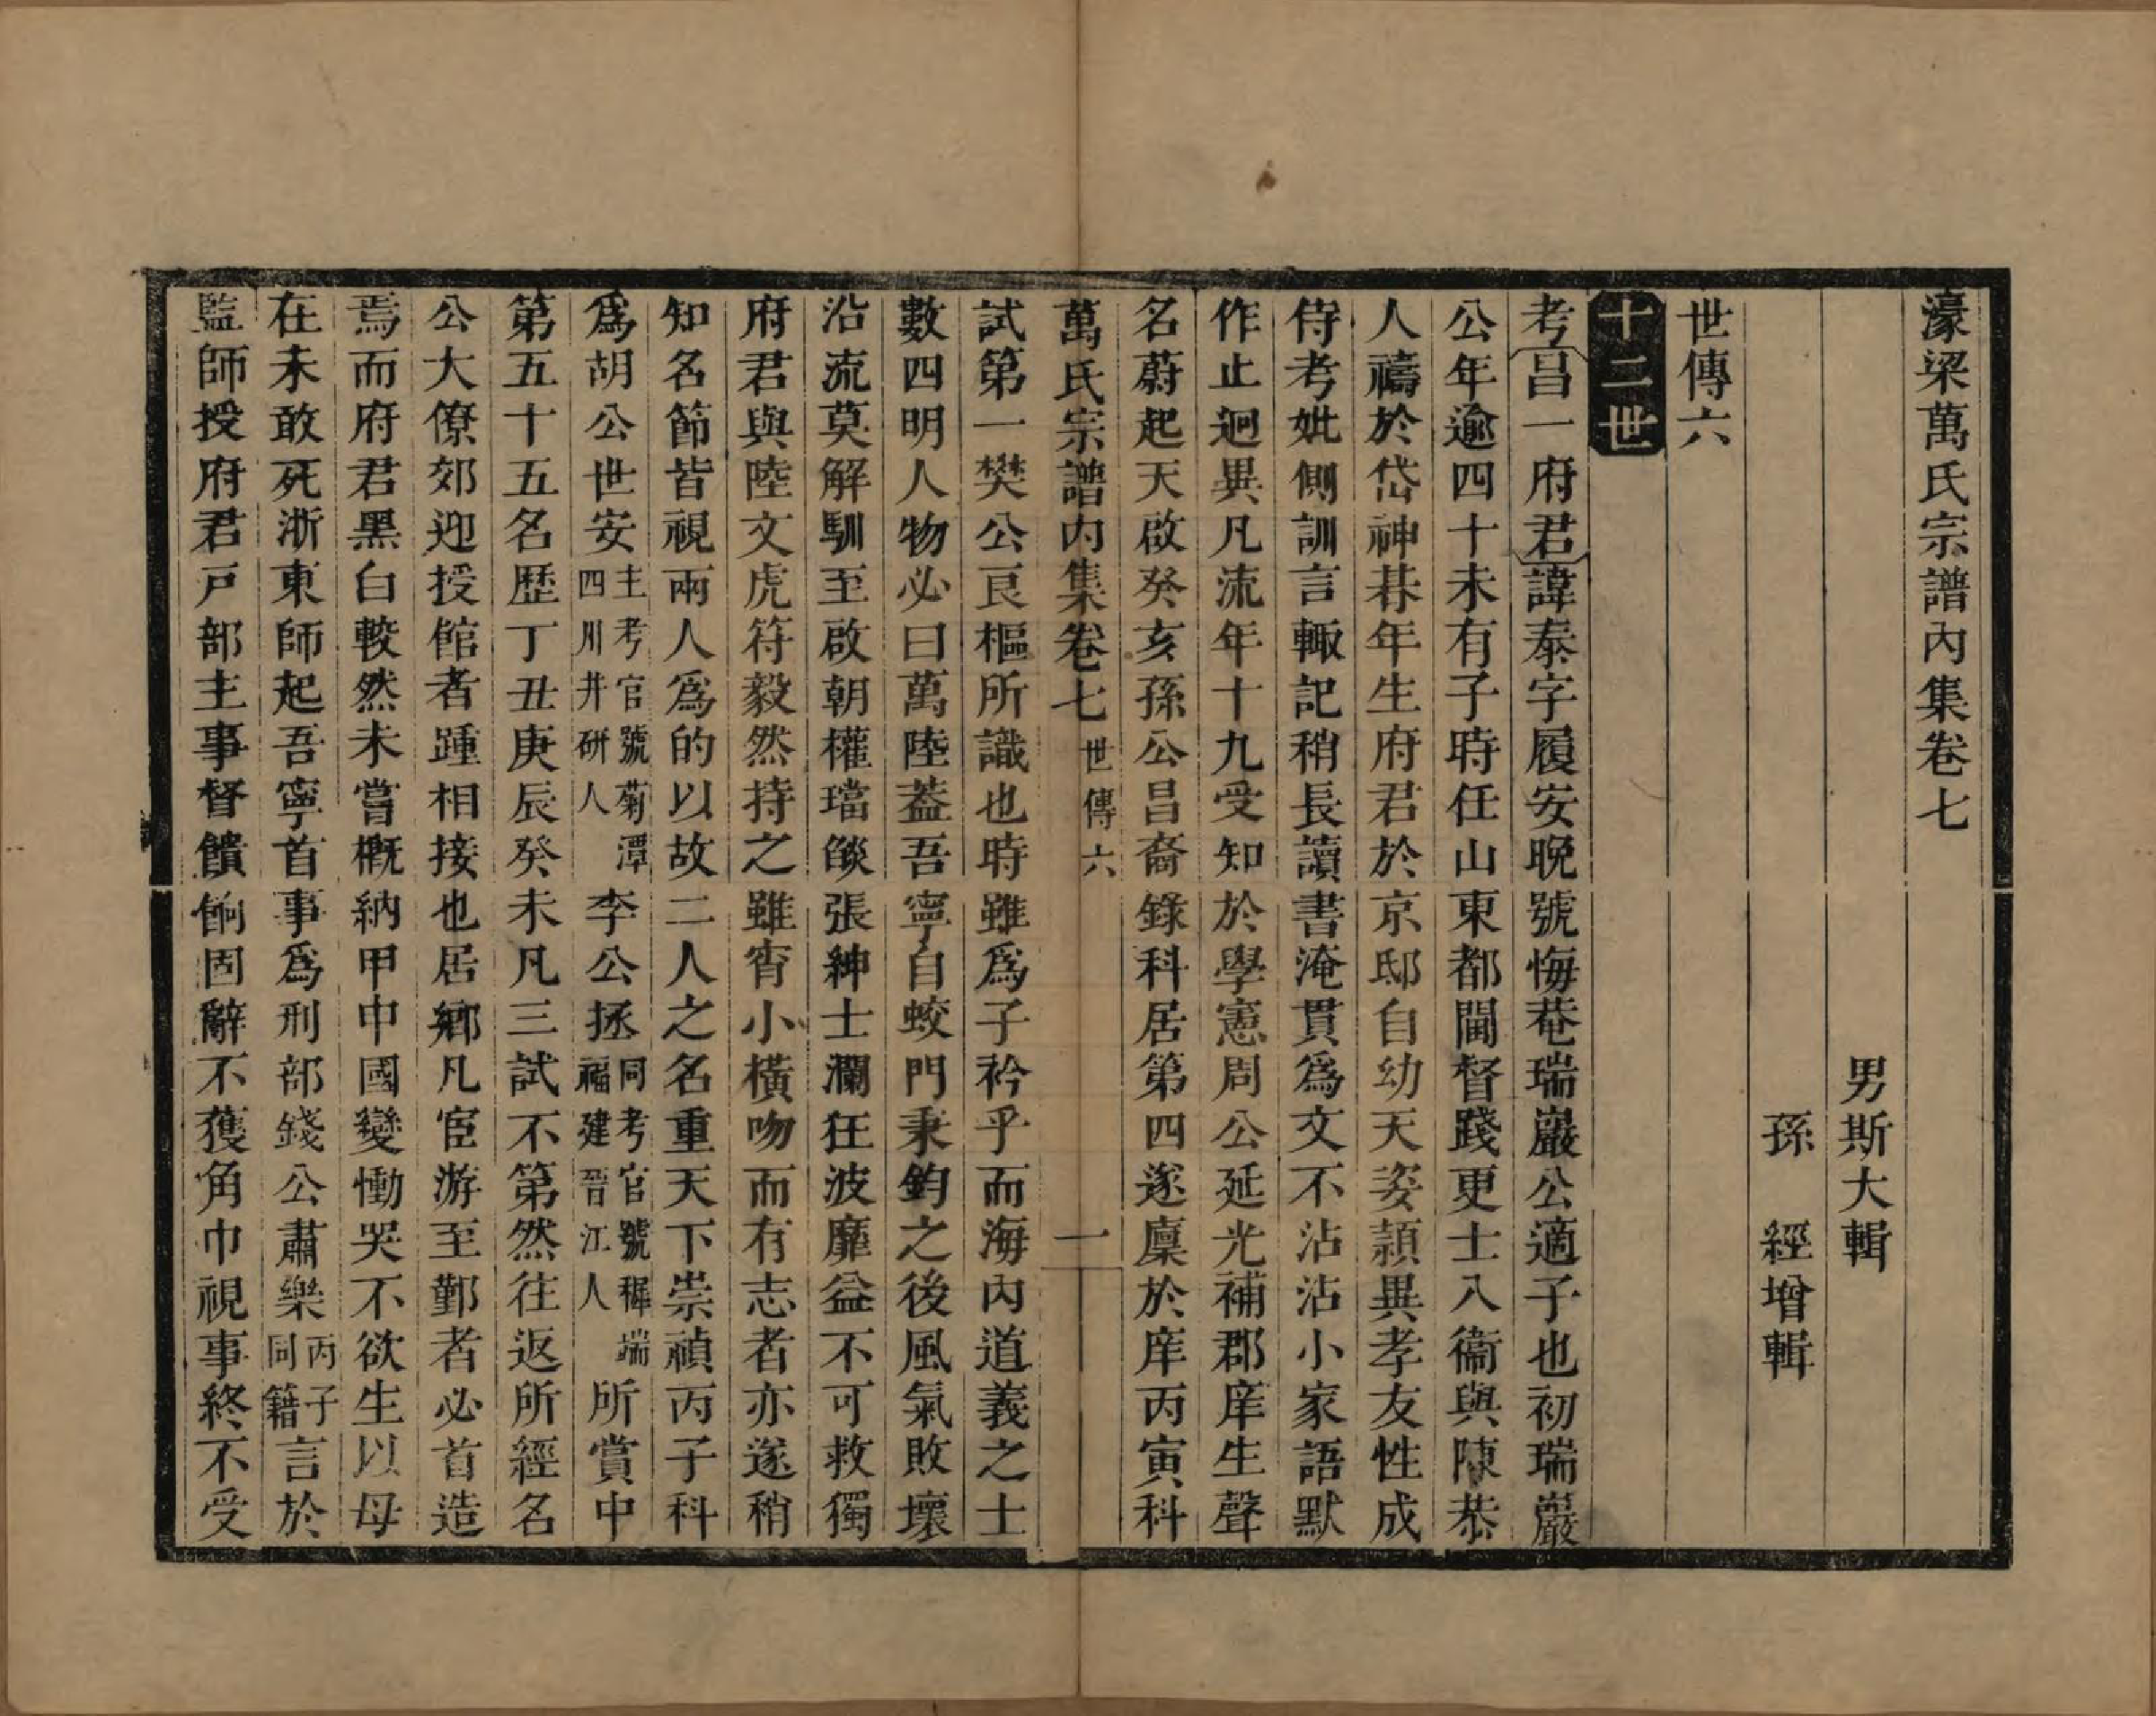 濠梁萬氏宗譜內集卷七
男斯大輯
孫　經增輯
世傳六
十二世
考昌一府君諱泰字履安晚號悔菴瑞巖公適子也初瑞巖
公年逾四十未有子時任山東都閫督踐更士入衞與陳恭
人禱於岱神朞年生府君於京邸自幼天姿穎異孝友性成
侍考妣側訓言輒記稍長讀書淹貫爲文不沾沾小家語默
作止迥異凡流年十九受知於學憲周公延光補郡庠生聲
名蔚起天啟癸亥孫公昌裔錄科居第四遂廩於庠丙寅科
萬氏宗譜內集卷七　世傳六　一
試第一樊公良樞所識也時雖爲子衿乎而海內道義之士
數四明人物必曰萬陸葢吾寧自蛟門秉鈞之後風氣敗壞
沿流莫解馴至啟朝權璫燄張紳士瀾狂波靡益不可救獨
府君與陸文虎符毅然持之雖宵小橫吻而有志者亦遂稍
知名節皆視兩人爲的以故二人之名重天下崇禎丙子科
爲胡公世安主考官號菊潭四川井研人李公拯同考官號穉端福建晉江人所賞中
第五十五名歷丁丑庚辰癸未凡三試不第然往返所經名
公大僚郊迎授館者踵相接也居鄉凡宦游至鄞者必首造
焉而府君黑白較然未嘗槪納甲申國變慟哭不欲生以母
在未敢死浙東師起吾寧首事爲刑部錢公肅樂丙子同籍言於
監師授府君戸部主事督饋餉固辭不獲角巾視事終不受